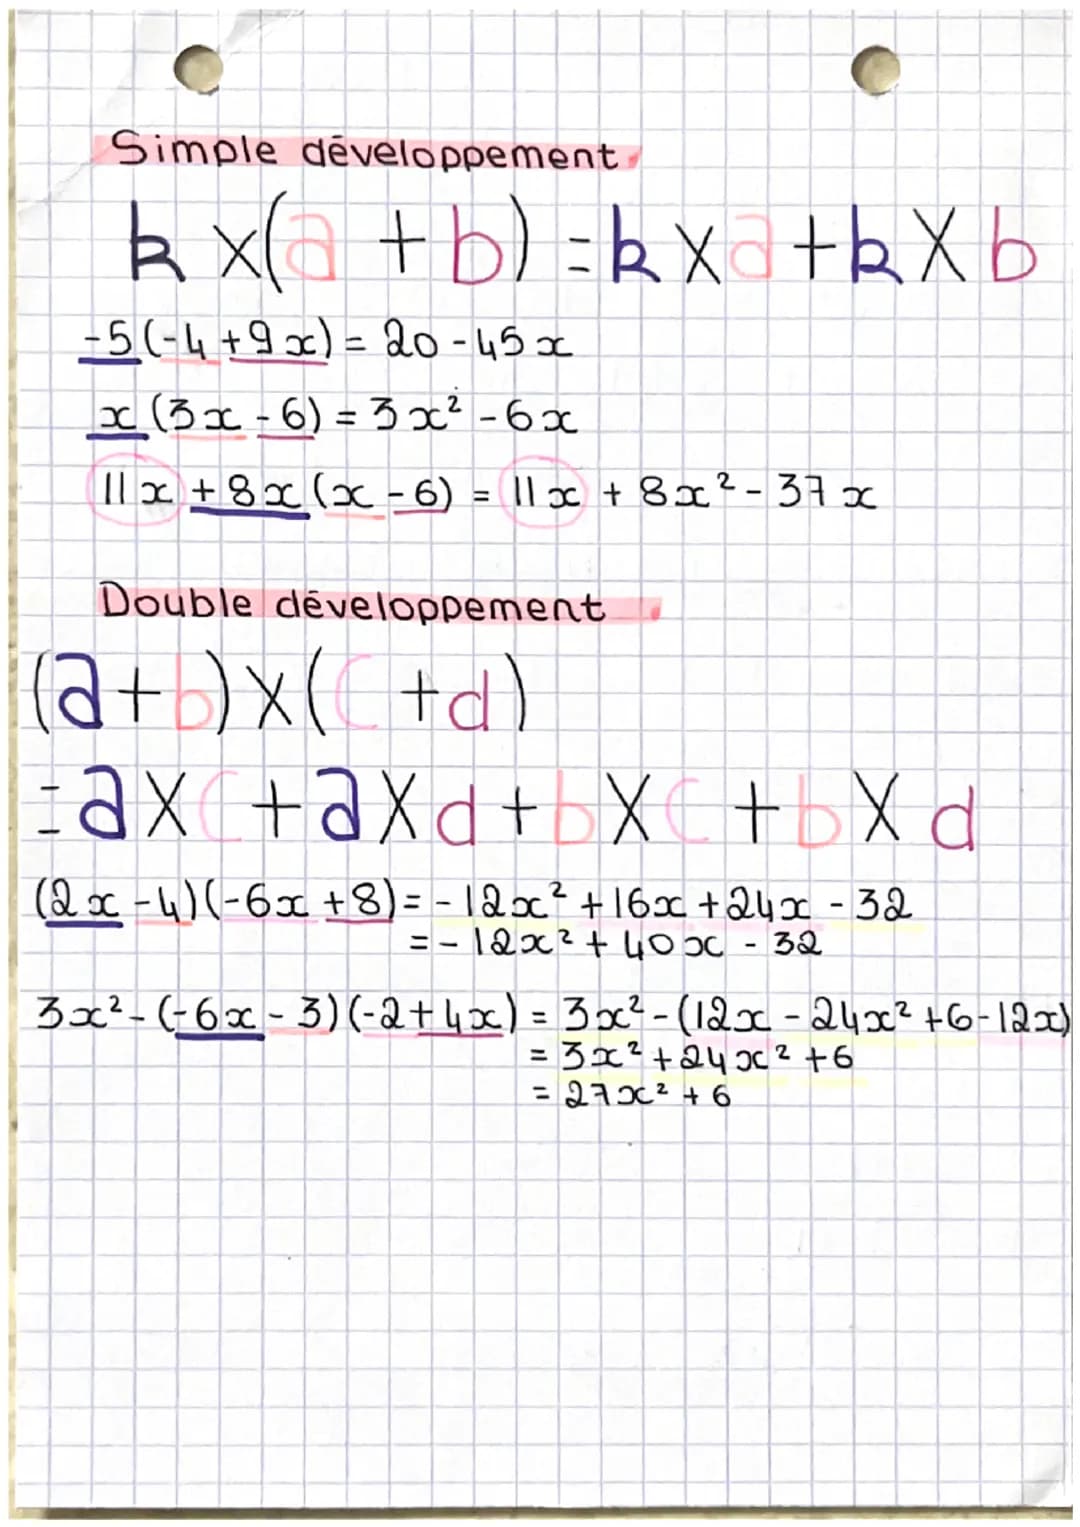 Simple développement
k x(a + b) = k x a + k x b
-5(-4+9x) = 20 - 45x
x (3x - 6) = 3x² - 6x
11x + 8x (x - 6) = 11x + 8x² - 37x
Double développement
(a+b) x (c + d)
= a x c + a x d + b x c + b x d
(2x - 4)(-6x + 8) = - 12x² + 16x + 24x - 32
= - 12x² + 40x - 32
3x² - (-6x - 3)(-2+4x) = 3x² - (12x - 24x² + 6 - 12x)
= 3x² + 24x² + 6
= 27x² + 6